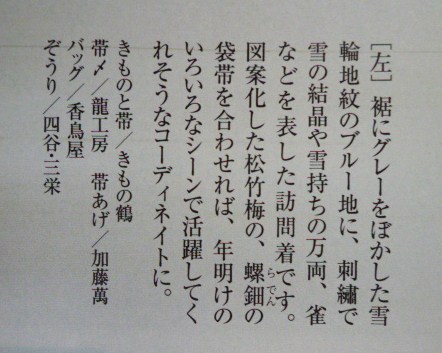 ［左］裾にグレーをぼかした雪
輪地紋のブルー地に、刺繍で
雪の結晶や雪持ちの万両、雀
などを表した訪問着です。
図案化した松竹梅の、螺鈿の
らでん
袋帯を合わせれば、年明けの
いろいろなシーンで活躍してく
れそうなコーディネイトに。
きものと帯／きもの鶴
帯〆／龍工房　帯あげ／加藤萬
バッグ／香鳥屋
ぞうり／四谷・三栄